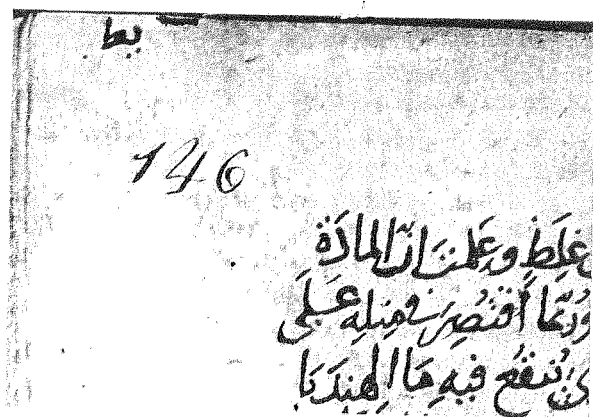 بعا
146
غلظ وعلمت ان المادة
وربما اقتصر في مثله على
ينقع فيه ماء الهندبا